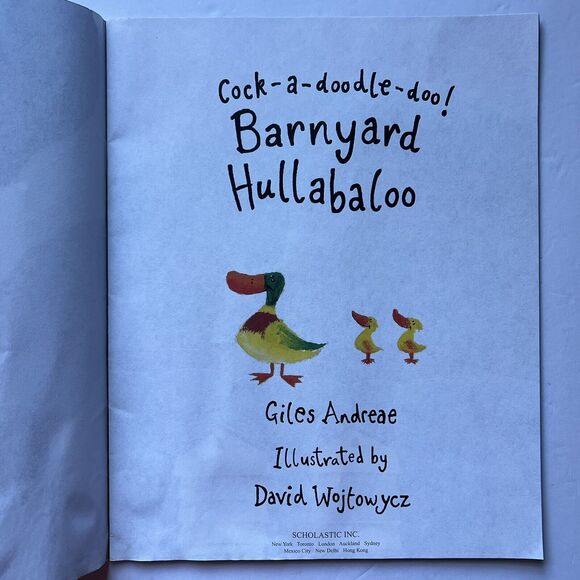 Cock-a-doodle-doo!
Barnyard
Hullabaloo
Giles Andreae
Illustrated by
David Wojtowycz
SCHOLASTIC INC.
New York Toronto London Auckland Sydney
Mexico City New Delhi Hong Kong